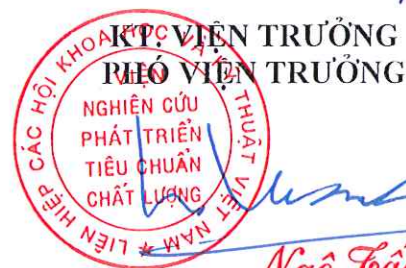 KT. VIỆN TRƯỞNG
PHÓ VIỆN TRƯỞNG
LIÊN HIỆP CÁC HỘI KHOA HỌC VÀ KỸ THUẬT VIỆT NAM
VIỆN
NGHIÊN CỨU
PHÁT TRIỂN
TIÊU CHUẨN
CHẤT LƯỢNG
Ngô